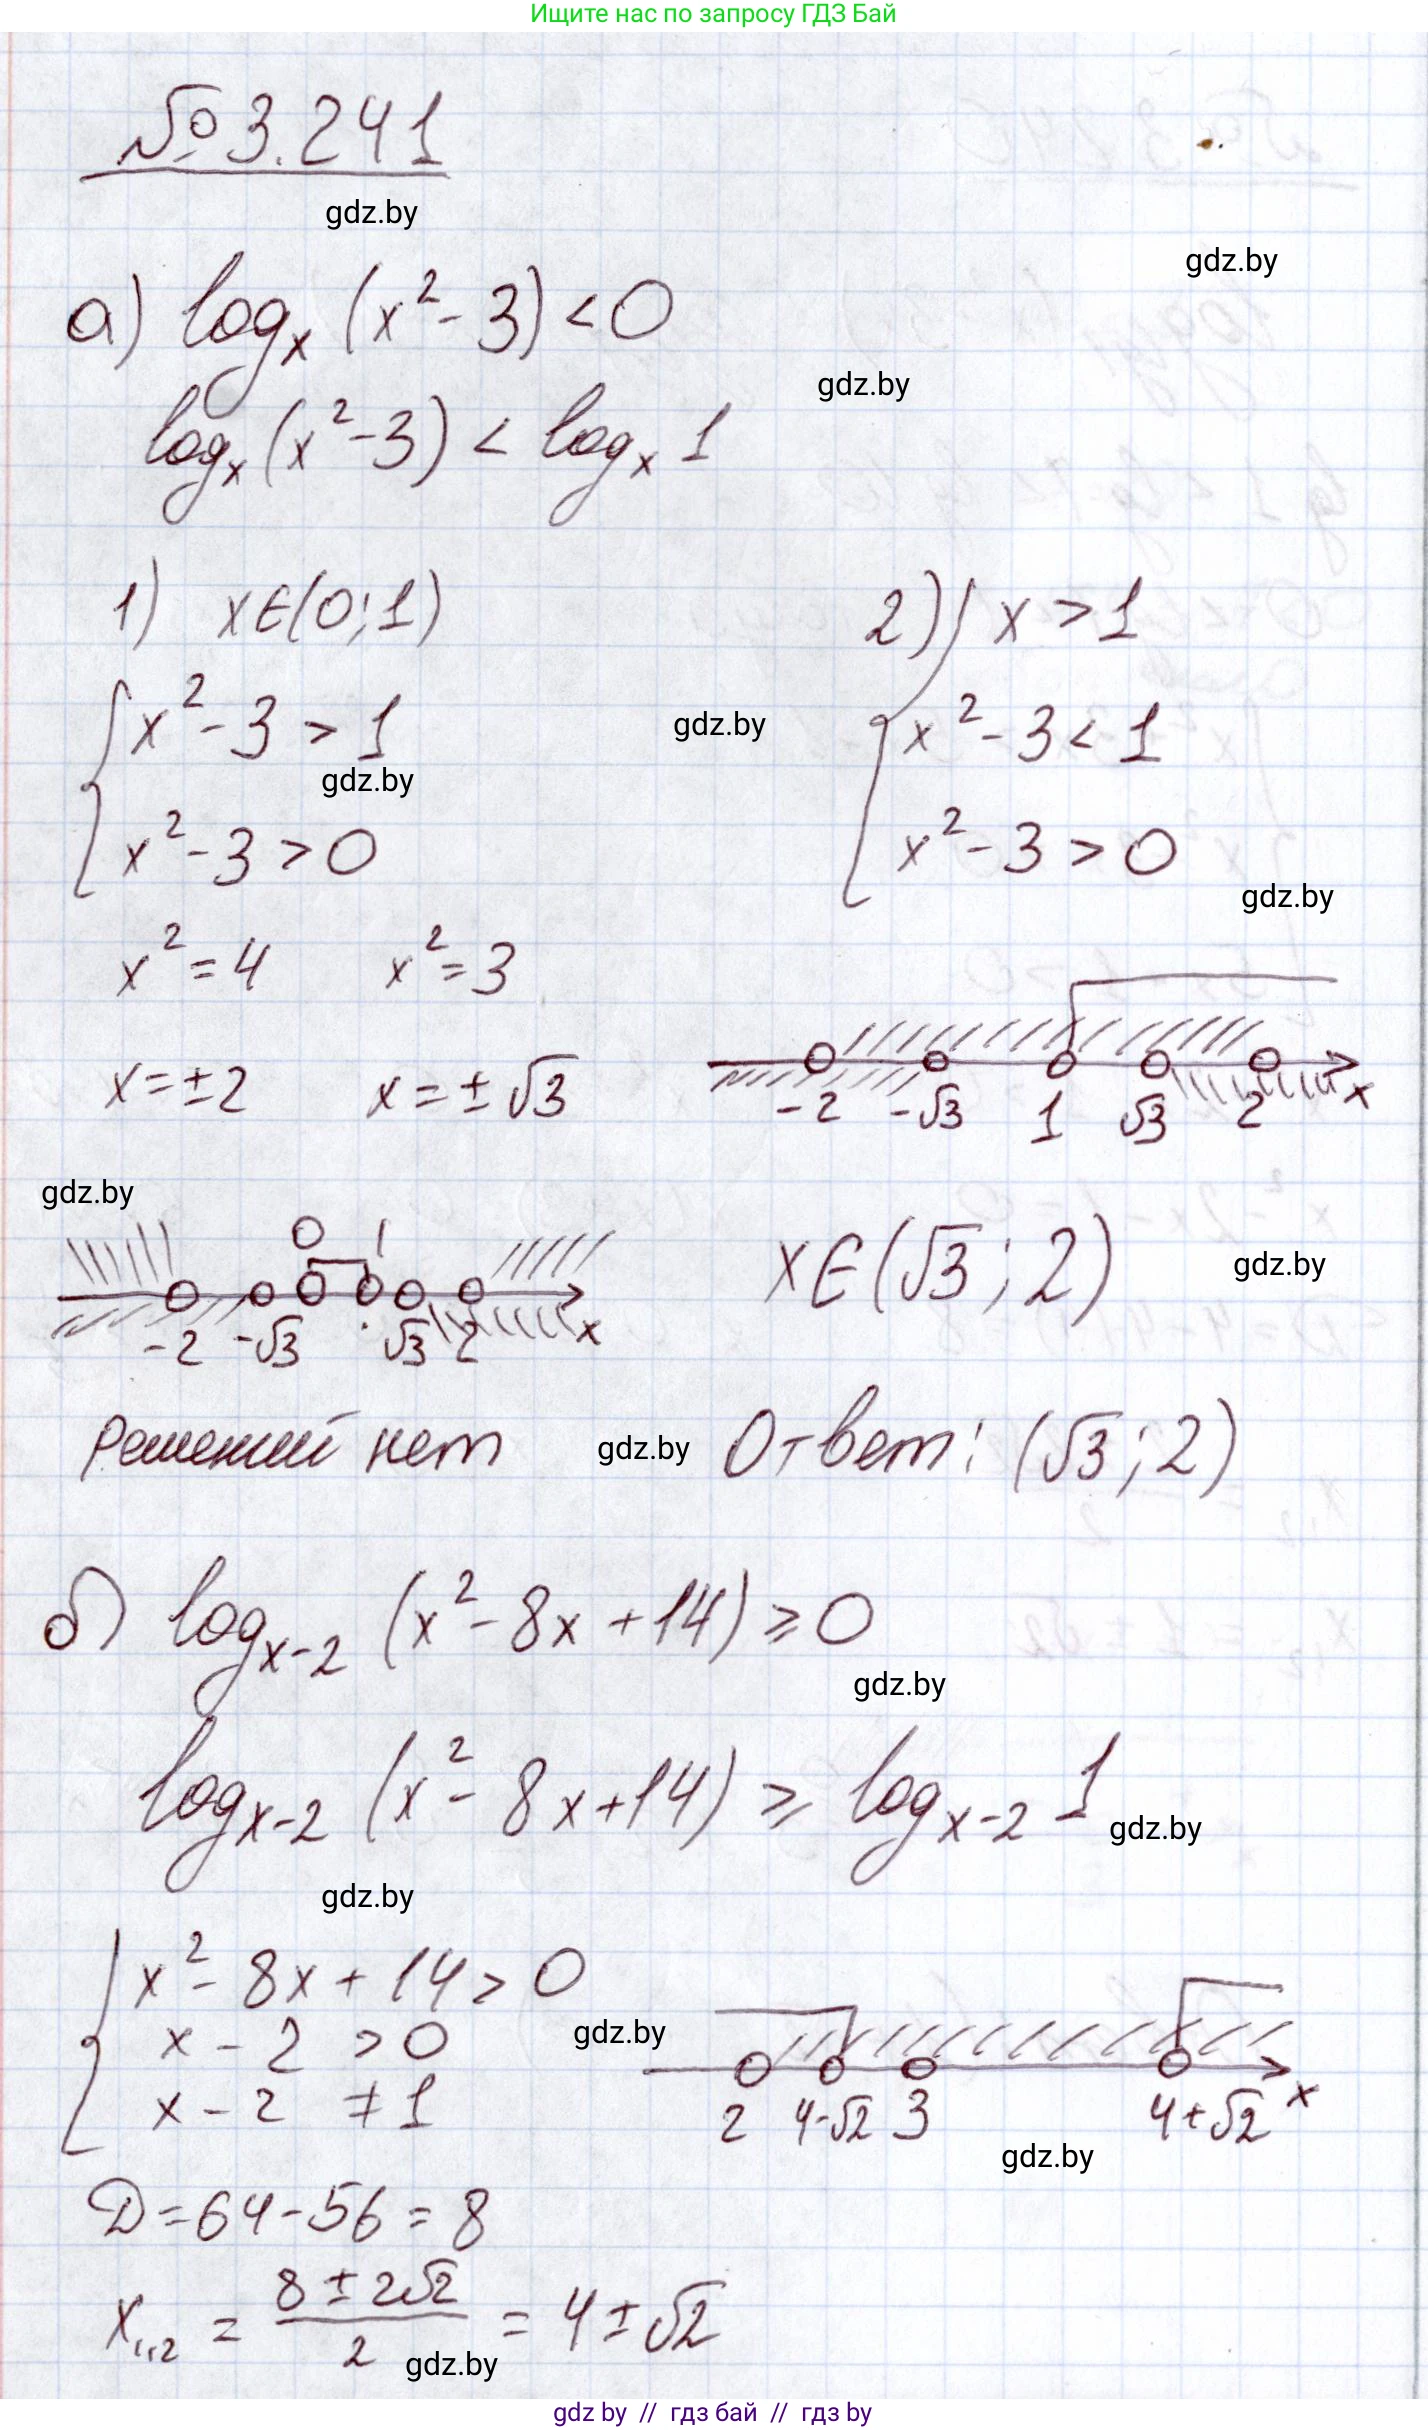 Ищите нас по запросу ГДЗ Бай
№ 3.241
gdz.by
gdz.by
а) logₓ (x² - 3) < 0
gdz.by
logₓ (x² - 3) < logₓ 1
1) x ∈ (0; 1)
2) { x > 1
{ x² - 3 > 1
x² - 3 < 1
gdz.by
gdz.by
x² - 3 > 0
x² - 3 > 0
gdz.by
x² = 4 x² = 3
x = ± 2 x = ± √3
-2 -√3 1 √3 2 x
gdz.by
0 1
-2 -√3 √3 2 x
x ∈ (√3; 2)
gdz.by
решений нет
gdz.by
Ответ: (√3; 2)
б) log_{x-2} (x² - 8x + 14) ≥ 0
gdz.by
log_{x-2} (x² - 8x + 14) ≥ log_{x-2} 1
gdz.by
gdz.by
{ x² - 8x + 14 > 0
x - 2 > 0
gdz.by
x - 2 ≠ 1
2 4-√2 3 4+√2 x
gdz.by
D = 64 - 56 = 8
x₁,₂ = (8 ± 2√2)/2 = 4 ± √2
gdz.by
gdz by // гдз бай // гдз by